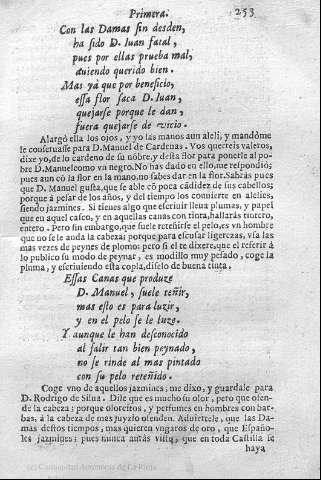 Primera. 253
Con las Damas sin desden,
ha sido D. Iuan fatal,
pues por ellas prueba mal,
auiendo querido bien.
Mas yà que por beneficio,
essa flor saca D. Iuan,
quejarse porque le dan,
fuera quejarse de vicio.
Alargó ella los ojos, y yo las manos aun alelì, y mandòme
le conseruasse para D. Manuel de Cardenas. Vos quereis valeros,
dixe yo, de lo cardeno de su nõbre, y desta flor para ponerle al po-
bre D. Manuel como vn negro. No has dado en ello, me respondiò;
pues aun cõ la flor en la mano, no sabes dar en la flor. Sabràs pues
que D. Manuel gusta, que se able cõ poca cãdidez de sus cabellos;
porque à pesar de los años, y del tiempo los conuierte en alelies,
siendo jazmines. Si tienes algo que escriuir lleua plumas, y papel
que en aquel casco, y en aquellas canas con tinta, hallaràs tintero,
entero. Pero sin embargo, que suele reteñirse el pelo, es vn hombre
que no se le anda la cabeza; porque para escusar ligerezas, vsa las
mas vezes de peynes de plomo: pero si el te dixere, que el referir à
lo publico su modo de peynar, es modillo muy pesado, coge la
pluma, y escriuiendo esta copla, diselo de buena tinta.
Essas Canas que produze
D. Manuel, suele teñir,
mas esto es para luzir,
y en el pelo se le luze.
Y aunque le han desconocido
al salir tan bien peynado,
no se rinde al mas pintado
con su pelo reteñido.
Coge vno de aquellos jazmines, me dixo, y guardale para
D. Rodrigo de Silua. Dile que es mucho su olor, pero que ofen-
de la cabeza; porque olorcitos, y perfumes en hombres con bar-
bas, à la cabeza de mes juyzio ofenden. Aduiertele, que las Da-
mas destos tiempos, mas quieren vngaros de oro, que Españo-
les jazmines; pues nunca auràs visto, que en toda Castilla se
haya
(c) Comunidad Autónoma de La Rioja